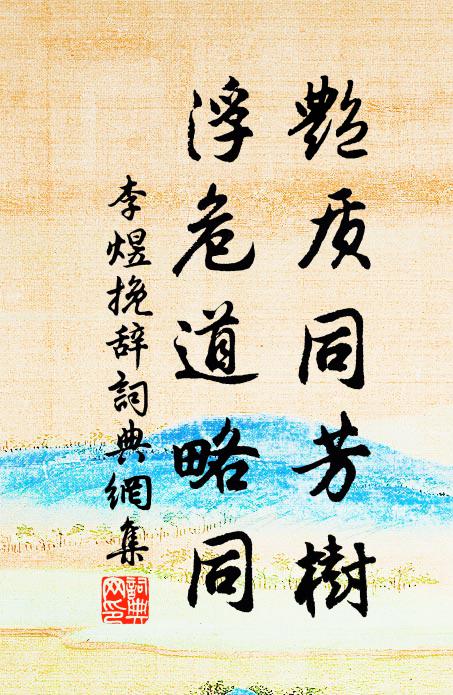 艷质同芳樹
浮危道略同
李煜挽辞詞典網集
詞典